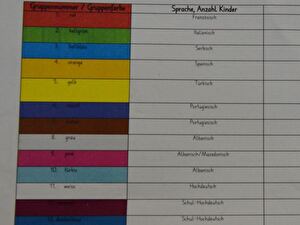 Gruppennummer / Gruppenfarbe Sprache, Anzahl Kinder
1. rot Französisch
2. hellgrün Italienisch
3. hellblau Serbisch
4. orange Spanisch
5. gelb Türkisch
6. Portugiesisch
7. Portugiesisch
8. grau Albanisch
9. pink Albanisch/Mazedonisch
10. türkis Albanisch
11. weiss Hochdeutsch
Schul-Hochdeutsch
Schul-Hochdeutsch